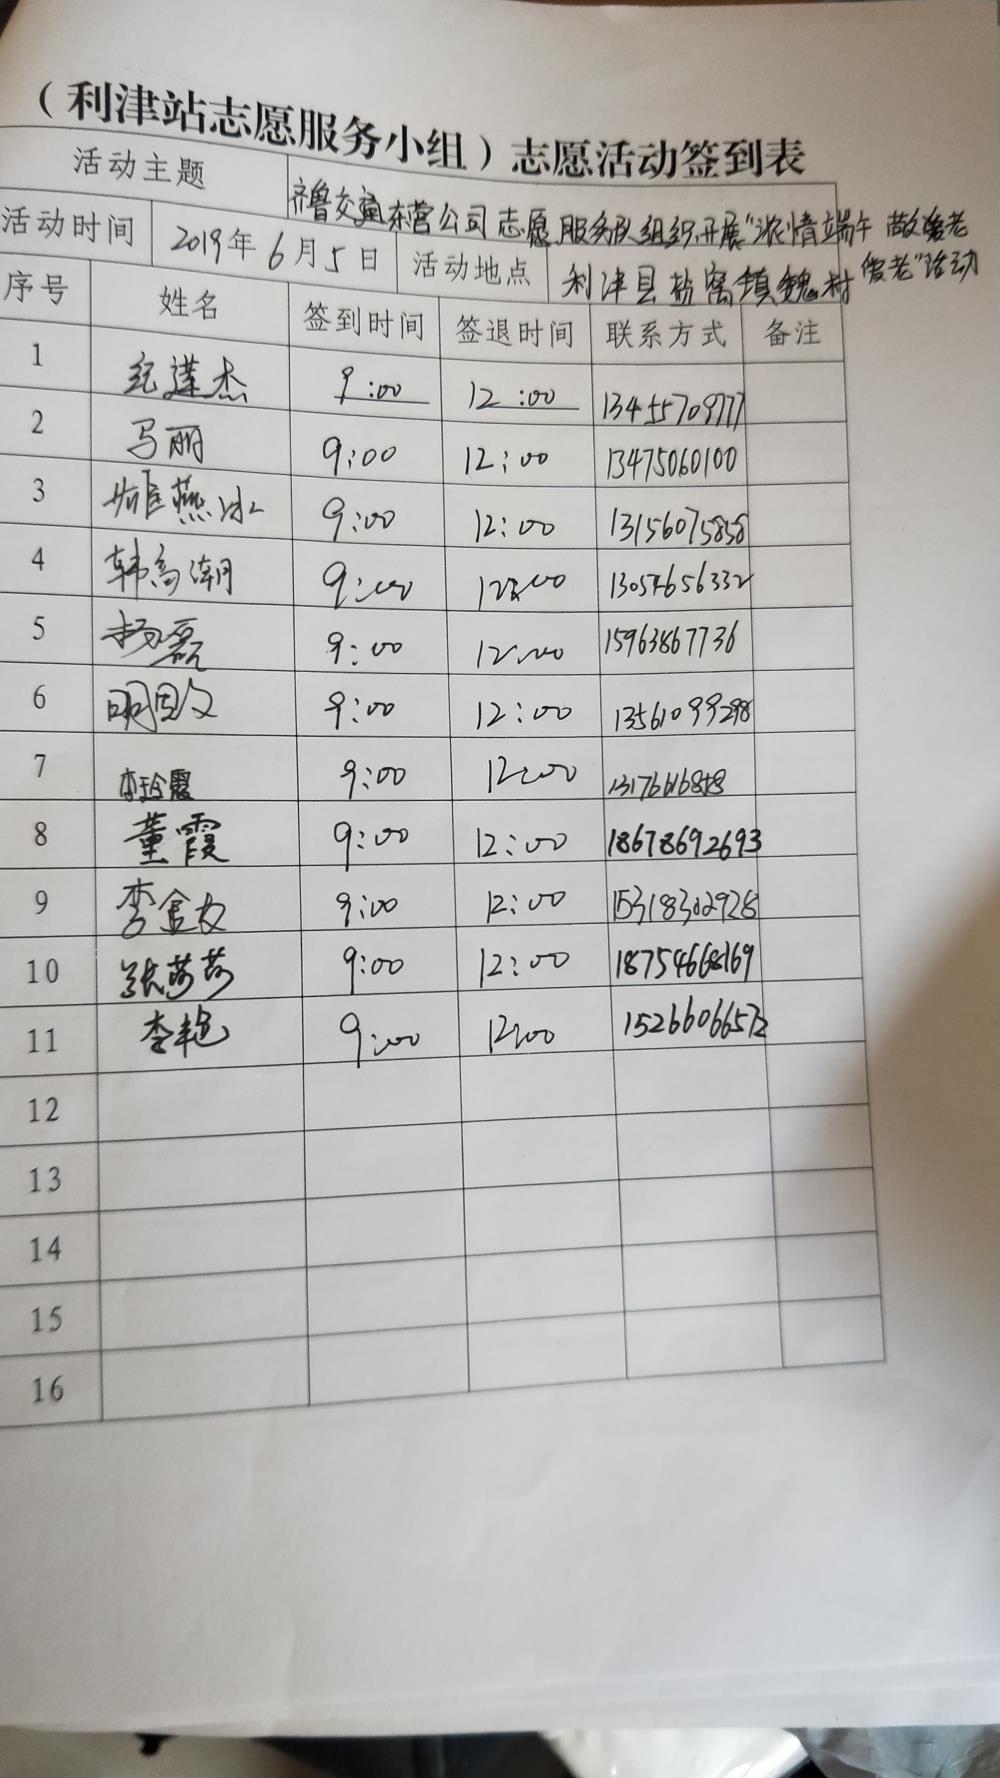 （利津站志愿服务小组）志愿活动签到表
活动主题 齐鲁交通东营公司志愿服务队组织开展"浓情端午 敬老爱老"活动
活动时间 2019年6月5日 活动地点 利津县盐窝镇魏村
序号 姓名 签到时间 签退时间 联系方式 备注
1 纪莲杰 9:00 12:00 13455709777
2 马丽 9:00 12:00 13475060100
3 燕冰 9:00 12:00 13156075858
4 韩高潮 9:00 12:00 13054656332
5 杨磊 9:00 12:00 15963867736
6 9:00 12:00 13561099298
7 李玲霞 9:00 12:00
8 董霞 9:00 12:00 18678692693
9 李金女 9:00 12:00 15318302928
10 张莎莎 9:00 12:00 18754668169
11 李艳 9:00 12:00 15266066572
12
13
14
15
16